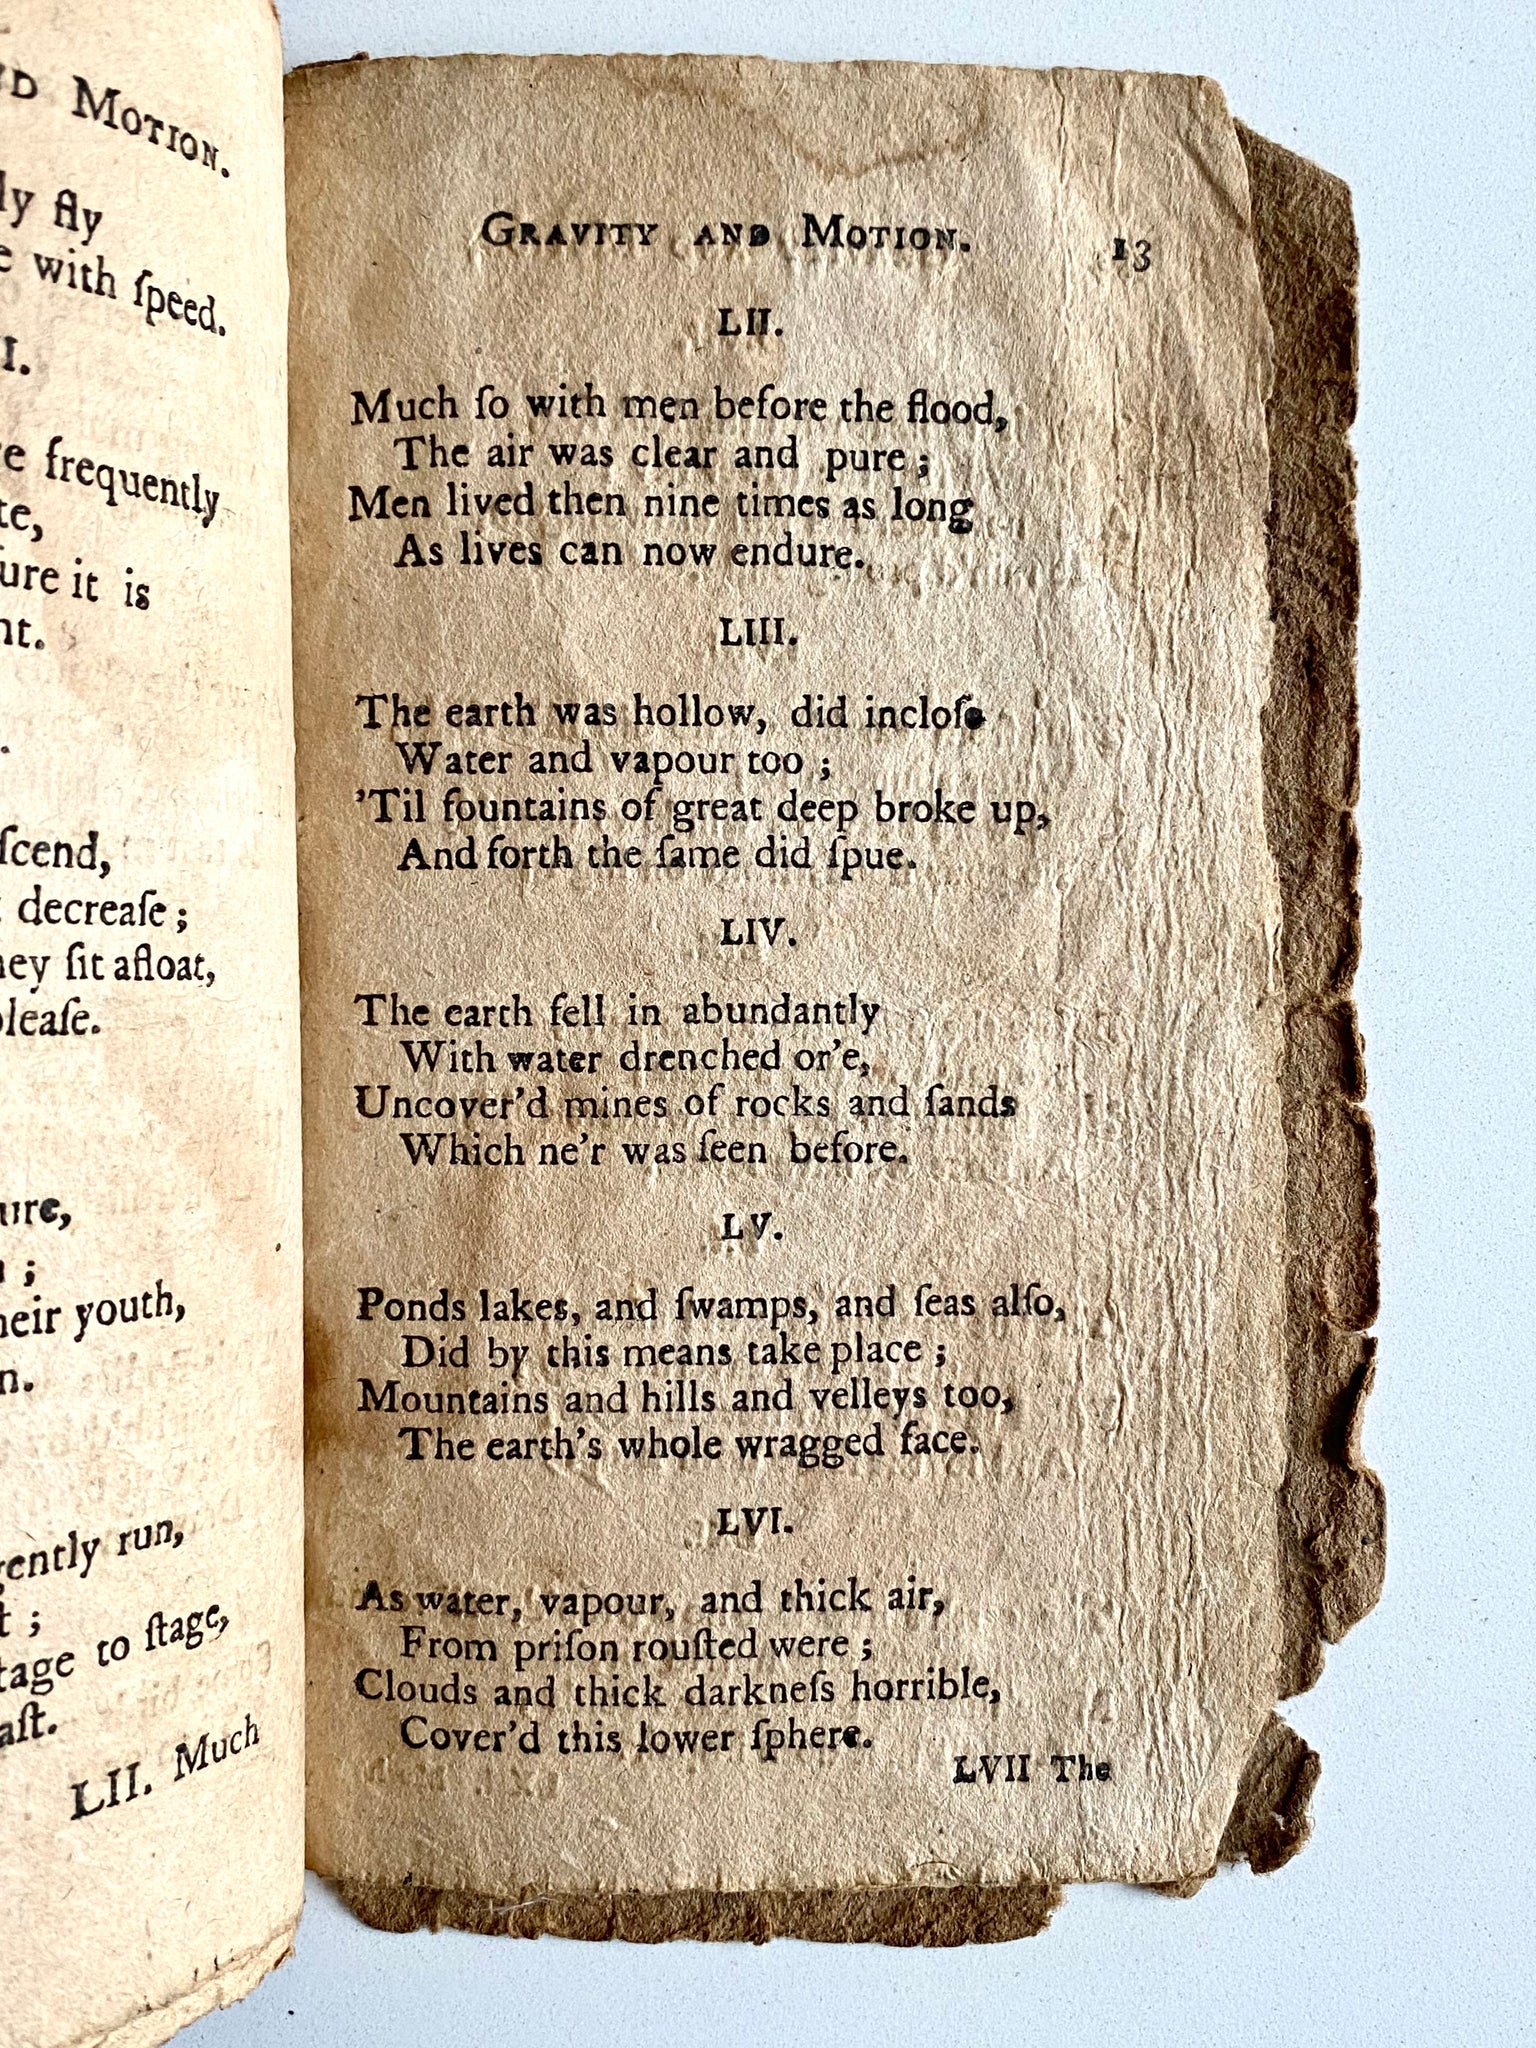 ND MOTION.
ly fly
e with ſpeed.
I.
e frequently
te,
ure it is
nt.
ſcend,
decreaſe ;
hey ſit afloat,
pleaſe.
ure,
;
heir youth,
n.
gently run,
t ;
tage to ſtage,
aſt.
LII. Much
GRAVITY AND MOTION. 13
LII.
Much ſo with men before the flood,
The air was clear and pure ;
Men lived then nine times as long
As lives can now endure.
LIII.
The earth was hollow, did incloſe
Water and vapour too ;
'Til fountains of great deep broke up,
And forth the ſame did ſpue.
LIV.
The earth fell in abundantly
With water drenched or'e,
Uncover'd mines of rocks and ſands
Which ne'r was ſeen before.
LV.
Ponds lakes, and ſwamps, and ſeas alſo,
Did by this means take place ;
Mountains and hills and velleys too,
The earth's whole wragged face.
LVI.
As water, vapour, and thick air,
From priſon rouſted were ;
Clouds and thick darkneſs horrible,
Cover'd this lower ſphere.
LVII The